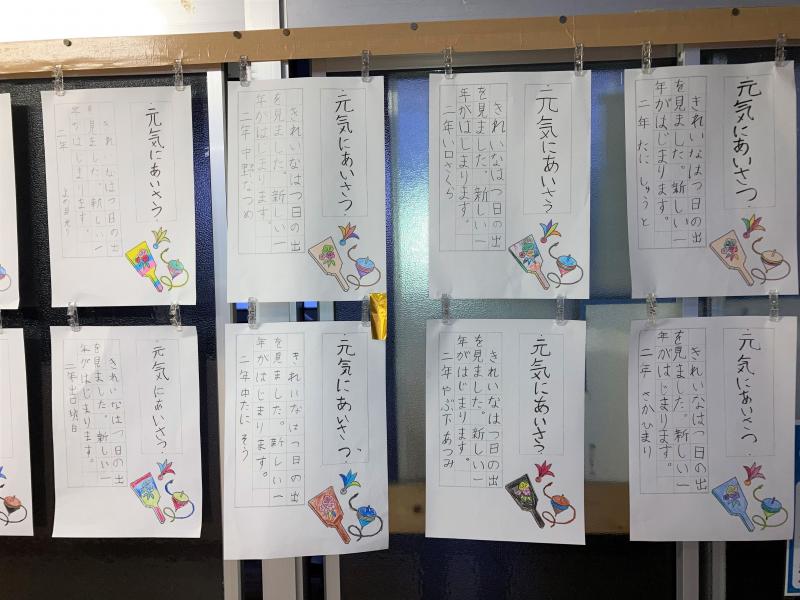 元気にあいさつ
きれいなはつ日の出
を見ました。新しい一
年がはじまります。
二年 たに しゅうと
元気にあいさつ
きれいなはつ日の出
を見ました。新しい一
年がはじまります。
二年 口さくら
元気にあいさつ
きれいなはつ日の出
を見ました。新しい一
年がはじまります。
二年 中野 なつめ
元気にあいさつ
きれいなはつ日の出
を見ました。新しい一
年がはじまります。
二年
元気にあいさつ
きれいなはつ日の出
を見ました。新しい一
年がはじまります。
二年 さかひまり
元気にあいさつ
きれいなはつ日の出
を見ました。新しい一
年がはじまります。
二年 やぶ下 あつみ
元気にあいさつ
きれいなはつ日の出
を見ました。新しい一
年がはじまります。
二年 中たに そう
元気にあいさつ
きれいなはつ日の出
を見ました。新しい一
年がはじまります。
二年 出口